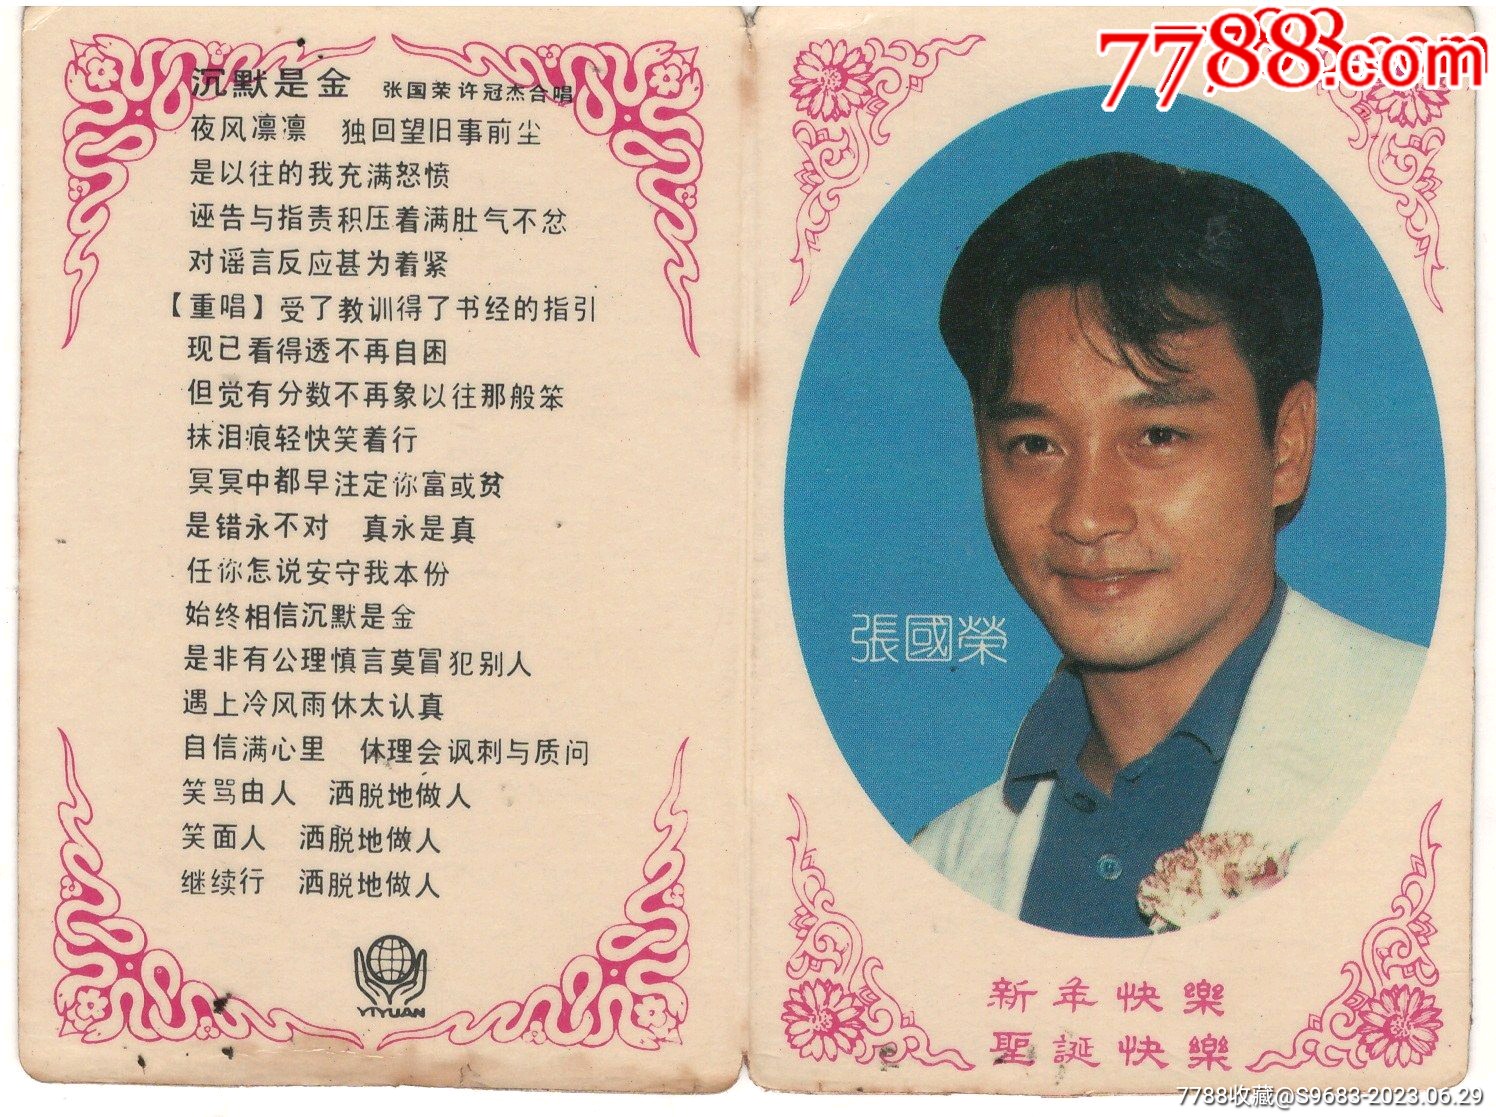 沉默是金 张国荣许冠杰合唱
夜风凛凛 独回望旧事前尘
是以往的我充满怒愤
诬告与指责积压着满肚气不忿
对谣言反应甚为着紧
【重唱】受了教训得了书经的指引
现已看得透不再自困
但觉有分数不再象以往那般笨
抹泪痕轻快笑着行
冥冥中都早注定你富或贫
是错永不对 真永是真
任你怎说安守我本份
始终相信沉默是金
是非有公理慎言莫冒犯别人
遇上冷风雨休太认真
自信满心里 体理会讽刺与质问
笑骂由人 洒脱地做人
笑面人 洒脱地做人
继续行 洒脱地做人
YIYUAN
7788.com
張國榮
新年快樂
聖誕快樂
7788收藏@S9683-2023.06.29